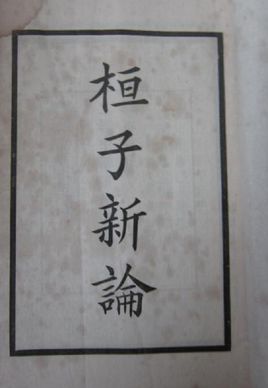 桓子新論